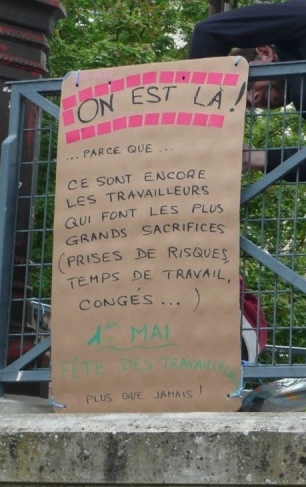 ON EST LÀ!
... PARCE QUE ...
CE SONT ENCORE
LES TRAVAILLEURS
QUI FONT LES PLUS
GRANDS SACRIFICES
(PRISES DE RISQUES,
TEMPS DE TRAVAIL,
CONGÉS ... )
1er MAI
FÊTE DES TRAVAILLEURS
PLUS QUE JAMAIS!